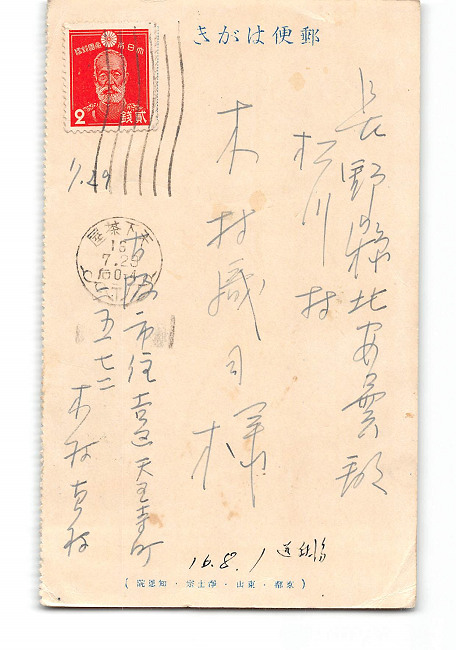 郵便はがき
大日本帝國郵便
2
貳錢
長野縣北安曇郡
松川村
木村歳司様
7.29
天下茶屋
16
7.29
大阪市住吉区天王寺町
五七二
木村
16.8.1
(京都・東山・淨土宗・知恩院)